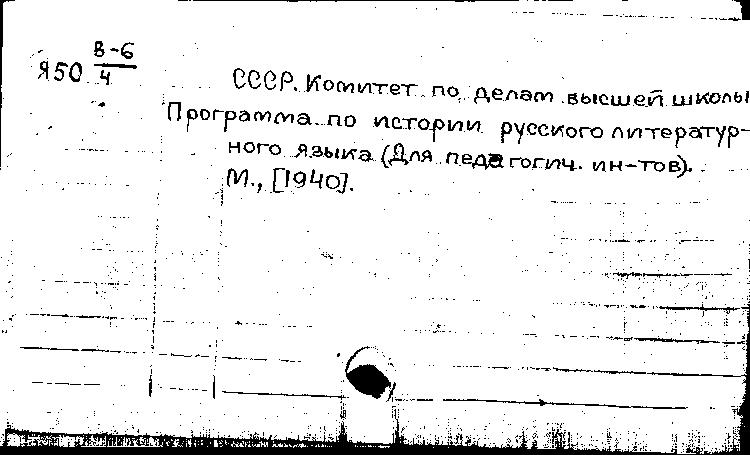 Я50 В-6/4
СССР. Комитет по делам высшей школы
Программа по истории русского литератур-
ного языка (Для педагогич. ин-тов).
М., [1940].